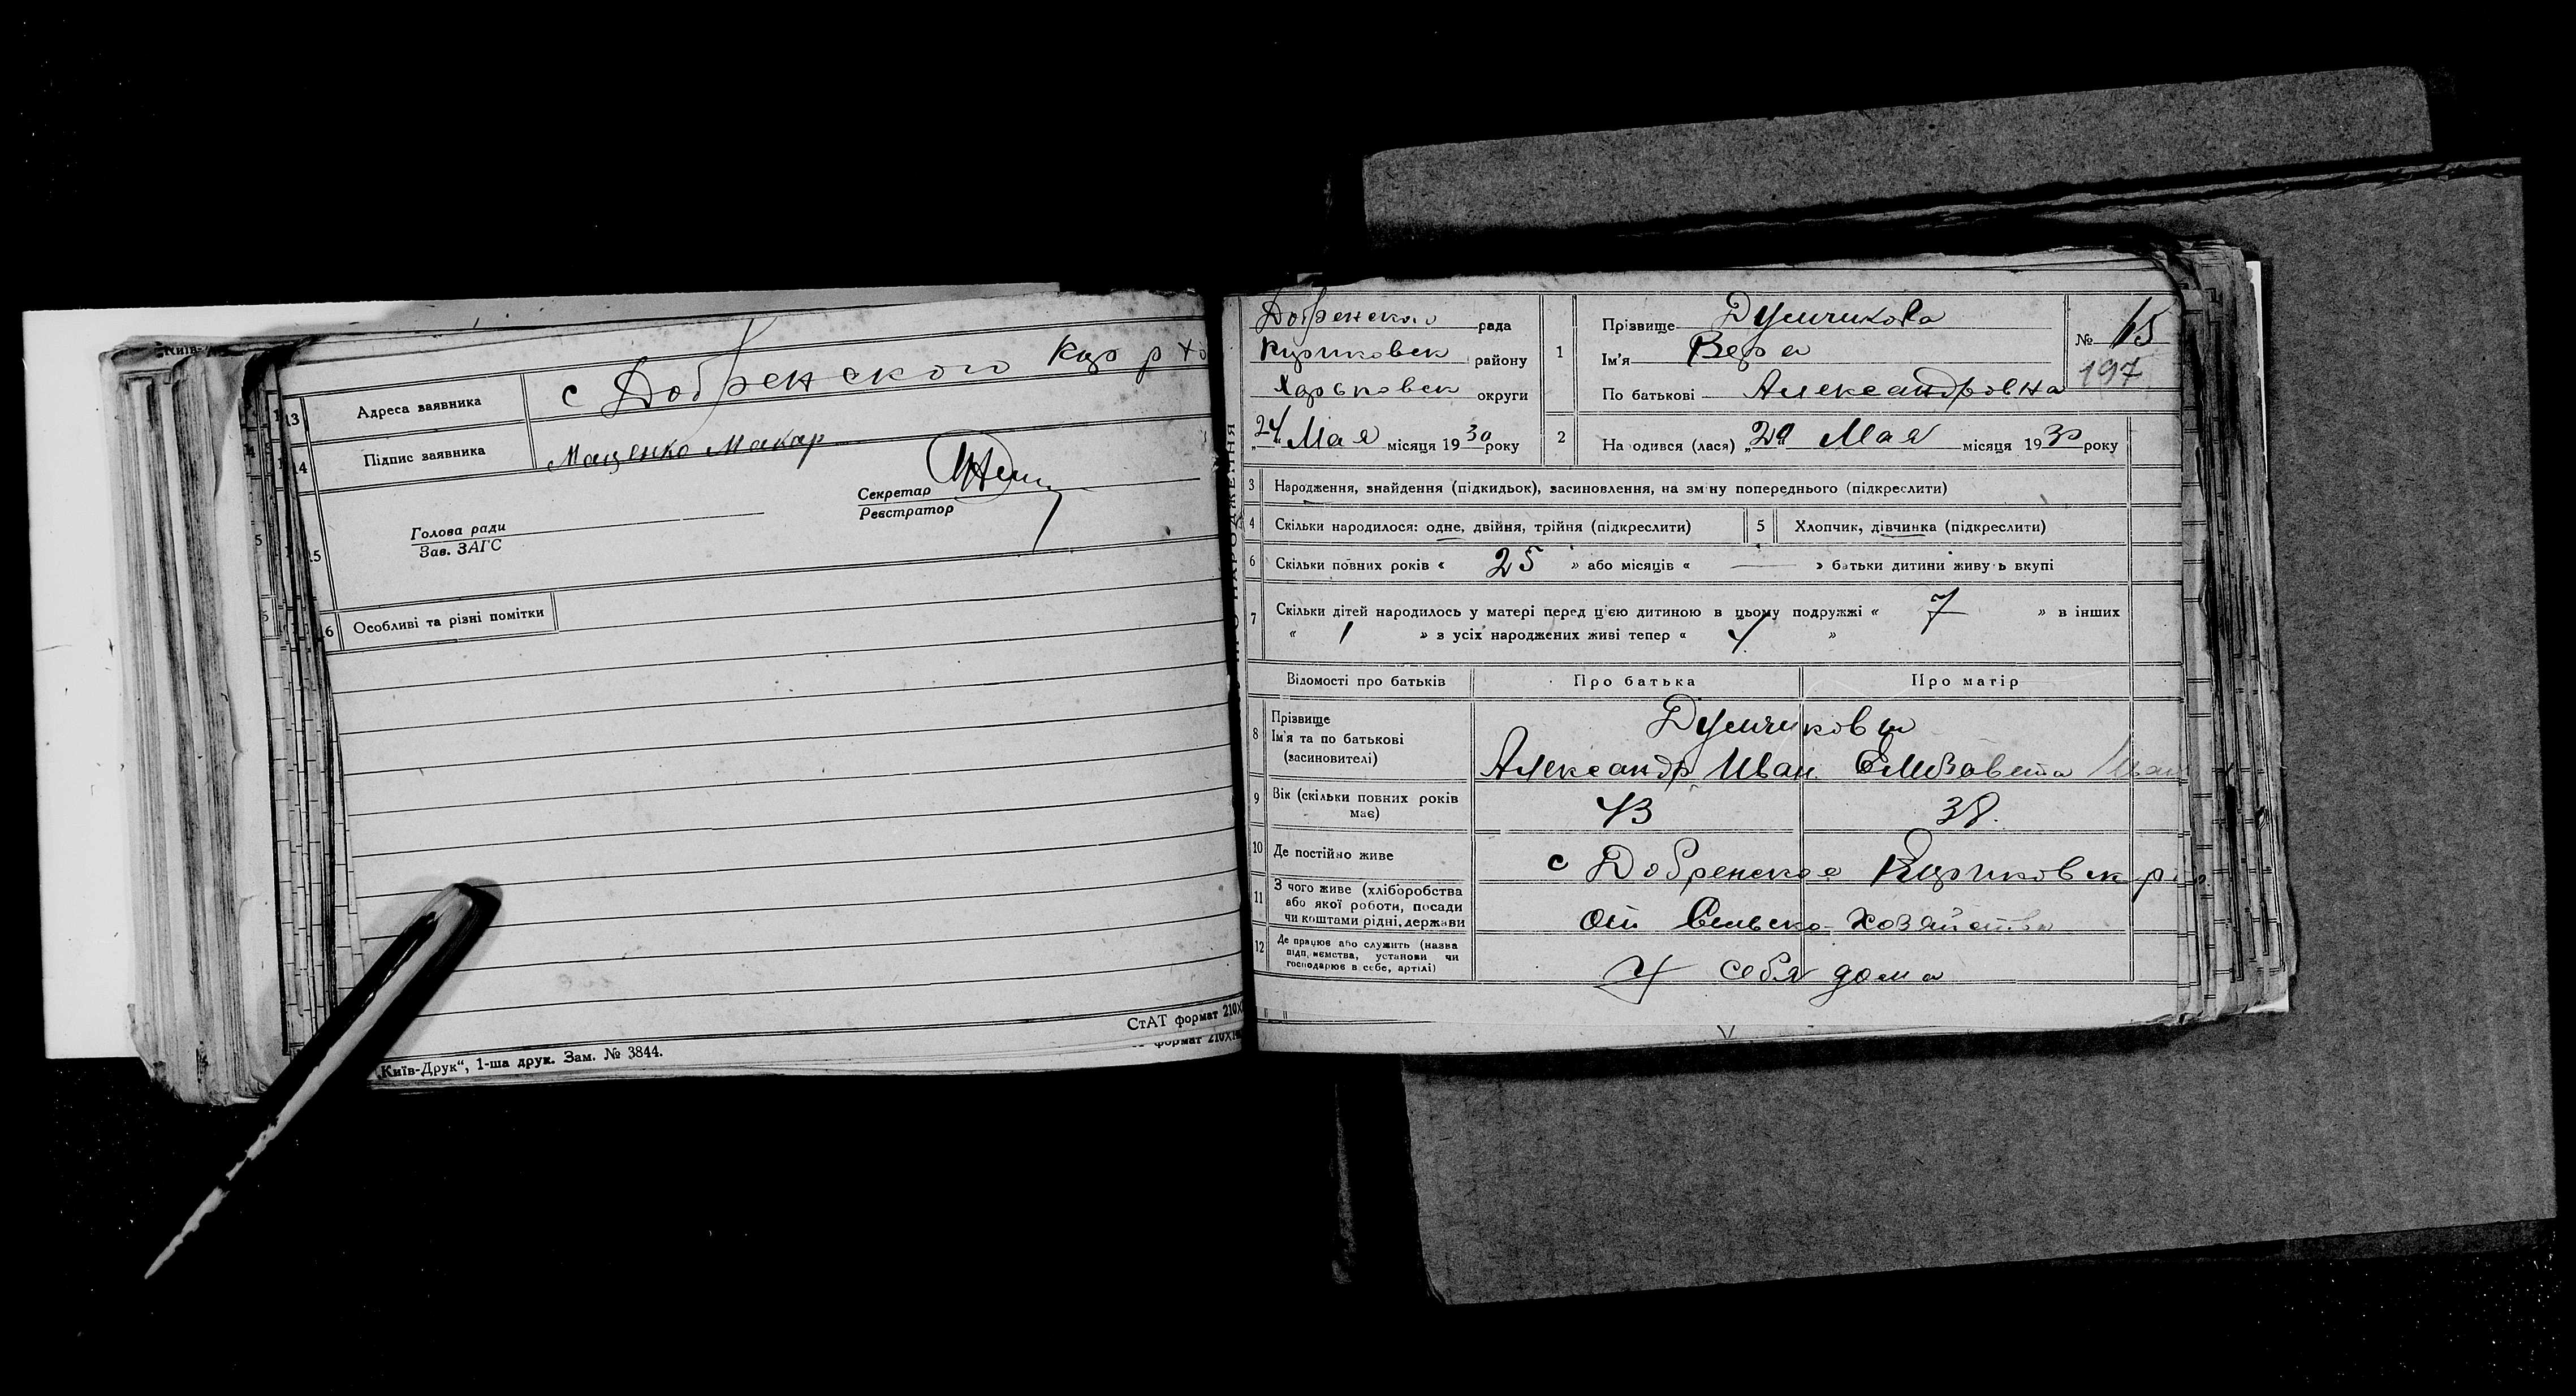 13 Адреса заявника с Добренского Кцр р Хо
14 Підпис заявника Маценко Макар
Секретар
Реєстратор
Голова ради
Зав. ЗАГС
15
16 Особливі та різні помітки
СтАТ формат 210X
„Київ-Друк“, 1-ша друк. Зам. № 3844.
Добренского рада
района Харьковск округи
24 Мая місяця 1930 року
1 Прізвище Думчикова
Ім'я Вера
По батькові Александровна
№ 65
197
2 Народився (лася) „24 Мая місяця 1930 року
3 Народження, знайдення (підкидьок), засиновлення, на зміну попереднього (підкреслити)
4 Скільки народилося: одне, двійня, трійня (підкреслити) 5 Хлопчик, дівчинка (підкреслити)
6 Скільки повних років « 25 » або місяців « — » батьки дитини живуть вкупі
7 Скільки дітей народилось у матері перед цією дитиною в цьому подружжі « 7 » в інших
« 1 » з усіх народжених живі тепер « 4 »
Відомості про батьків Про батька Про матір
8 Прізвище Думчиковы
Ім'я та по батькові
(засиновителі) Александр Иван Елизавета Иван
9 Вік (скільки повних років має) 43 38.
10 Де постійно живе с Добренское
11 З чого живе (хліборобства або якої роботи, посади чи коштами рідні, держави От Сельско-хозяйства
12 Де працює або служить (назва підприємства, установи чи господарює в себе, артілі) У себя дома